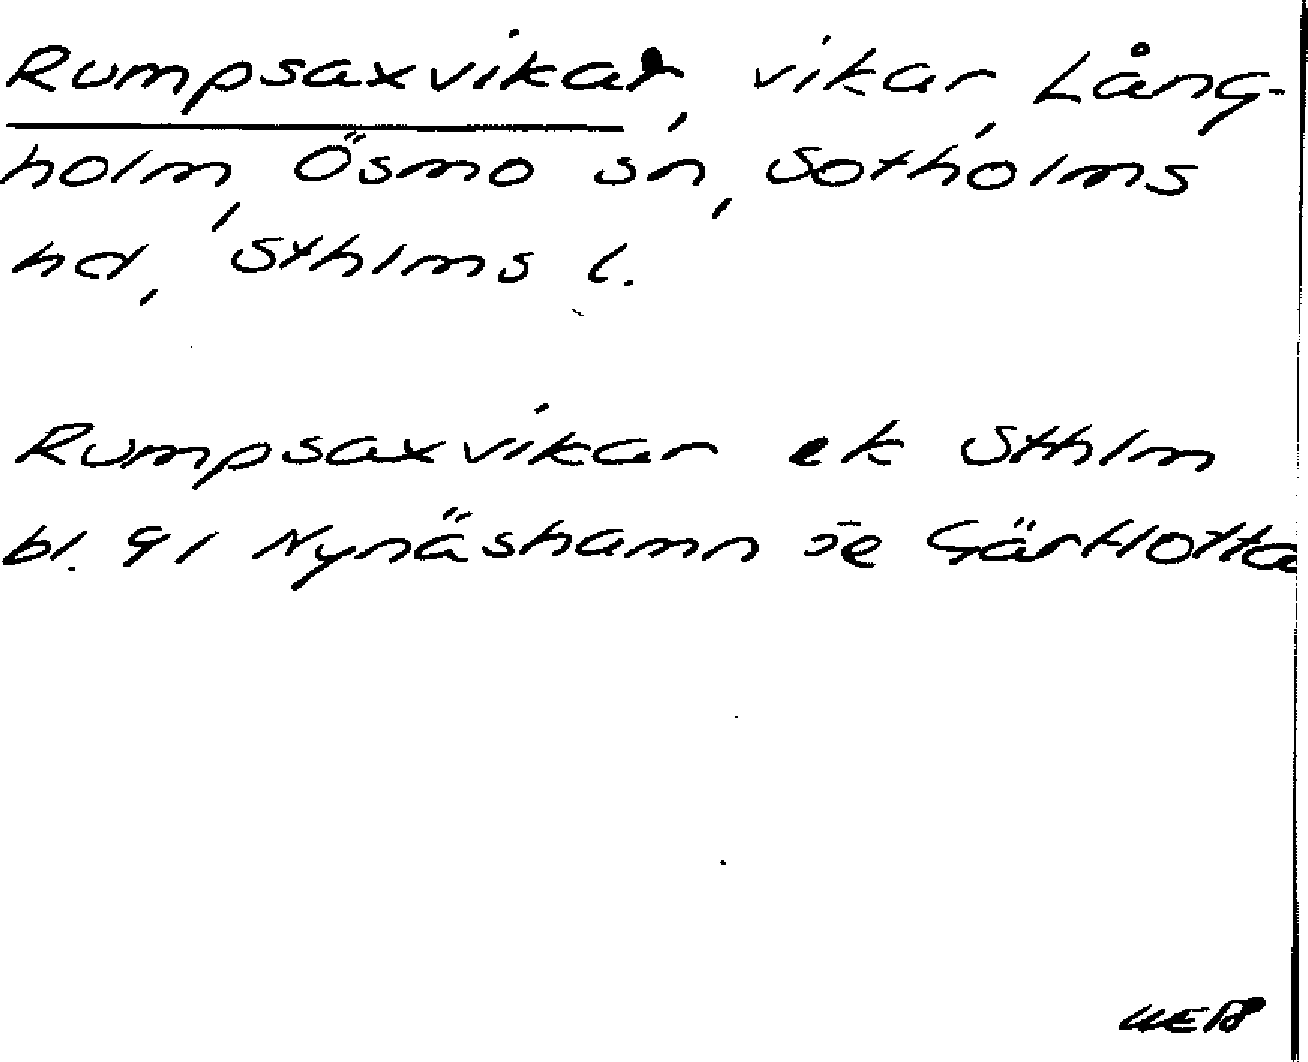 Rumpsaxvikar, vikar, Lång-
holm, Ösmo sn, Sotholms
hd, Sthlms l.
Rumpsaxvikar ek Sthlm
bl. 91 Nynäshamn